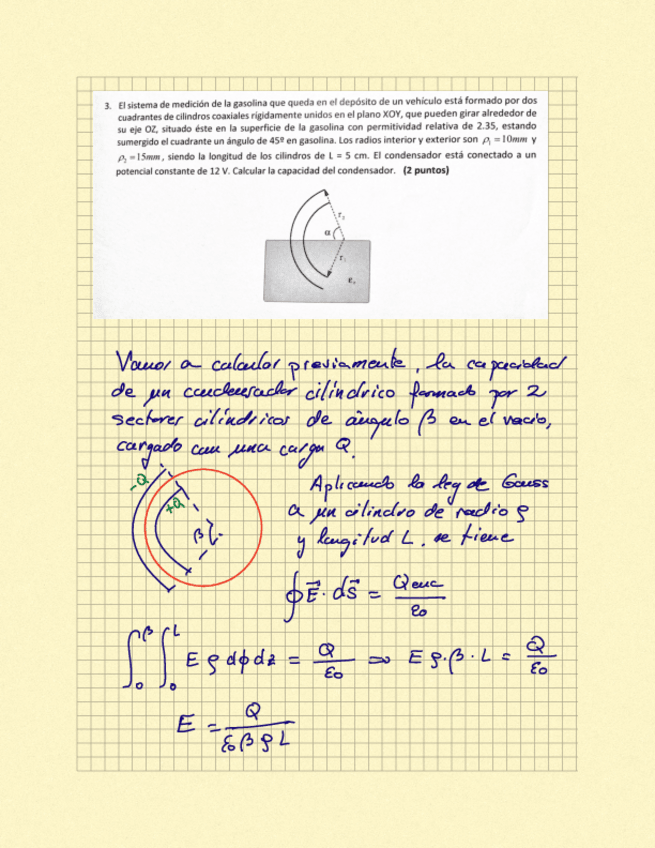 3. El sistema de medición de la gasolina que queda en el depósito de un vehículo está formado por dos
cuadrantes de cilindros coaxiales rígidamente unidos en el plano XOY, que pueden girar alrededor de
su eje OZ, situado éste en la superficie de la gasolina con permitividad relativa de 2.35, estando
sumergido el cuadrante un ángulo de 45º en gasolina. Los radios interior y exterior son ρ₁ = 10mm y
ρ₂ = 15mm, siendo la longitud de los cilindros de L = 5 cm. El condensador está conectado a un
potencial constante de 12 V. Calcular la capacidad del condensador. (2 puntos)
r₂
α
r₁
Vamos a calcular previamente, la capacidad
de un condensador cilíndrico formado por 2
sectores cilíndricos de ángulo β en el vacío,
cargado con una carga Q.
-Q
+Q
β
Aplicando la ley de Gauss
a un cilindro de radio ρ
y longitud L, se tiene
∮ E⃗ · ds⃗ = Qenc / ε₀
∫₀^β ∫₀^L E ρ dϕ dz = Q / ε₀ ⇒ E ρ · β · L = Q / ε₀
E = Q / ε₀ β ρ L